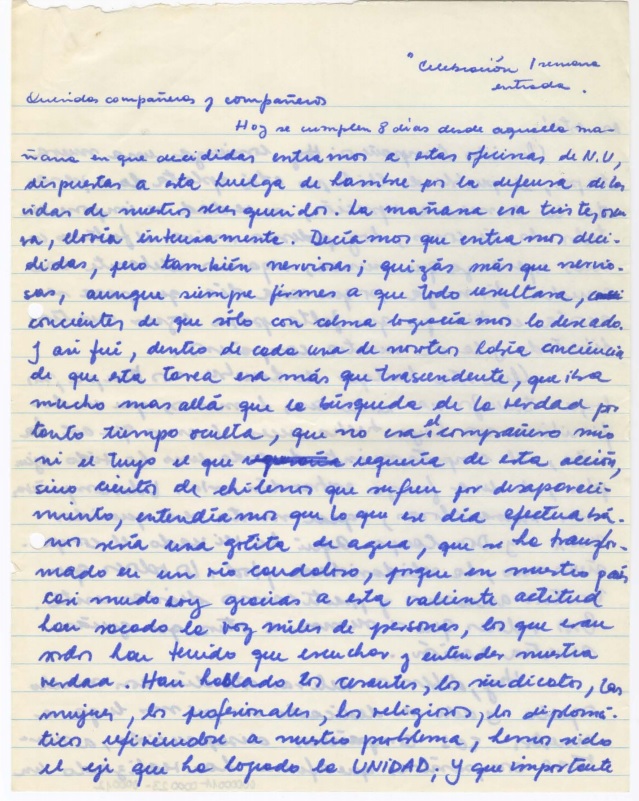 "Celebración 1 semana
entrada.
Queridas compañeras y compañeros
Hoy se cumplen 8 días desde aquella ma-
ñana en que decididas entramos a estas oficinas de N.U,
dispuestas a esta huelga de hambre por la defensa de las
vidas de nuestros seres queridos. La mañana era triste,
llovía intensamente. Decíamos que entramos deci-
didas, pero también nerviosas; quizás más que nervio-
sas, aunque siempre firmes a que todo resultara,
concientes de que sólo con calma lograríamos lo deseado.
Y así fué, dentro de cada una de nosotras había conciencia
de que esta tarea era más que trascendente, que iba
mucho mas allá que la búsqueda de la verdad por
tanto tiempo oculta, que no era el compañero mío
ni el tuyo el que requería de esta acción,
sino cientos de chilenos que sufren por desapareci-
miento, entendíamos que lo que ese día efectuaba-
mos sería una gotita de agua, que se ha transfor-
mado en un río caudaloso, porque en nuestro país
casi mudo hoy gracias a esta valiente actitud
han sacado la voz miles de personas, los que eran
sordos han tenido que escuchar y entender nuestra
verdad. Han hablado los cesantes, los sindicatos, las
mujeres, los profesionales, los religiosos, los diplomá-
ticos refiriendose a nuestro problema, hemos sido
el eje que ha logrado la UNIDAD; Y que importante